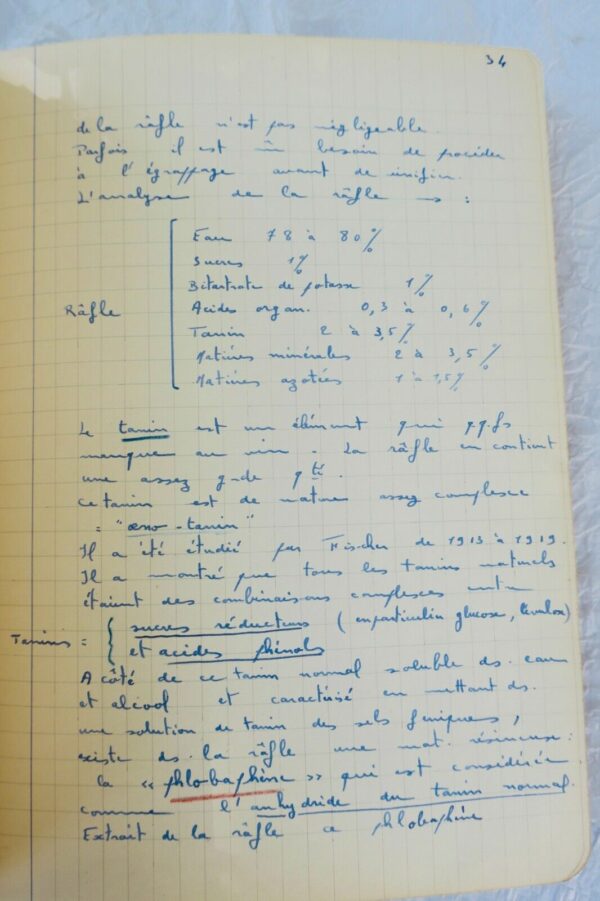 34
de la râfle n'est pas négligeable.
Parfois il est un besoin de procéder
à l'égrappage avant de vinifier.
L'analyse de la râfle → :
Eau 78 à 80%
Sucres 1%
Bitartrate de potasse 1%
Râfle
Acides organ. 0,3 à 0,6%
Tanin 2 à 3,5%
Matières minérales 2 à 3,5%
Matières azotées 1 à 1,5%
Le tanin est un élément qui qq.fs
manque au vin. La râfle en contient
une assez g-de qté.
Ce tanin est de nature assez complexe
= "œno-tanin"
Il a été étudié par Fischer de 1913 à 1919.
Il a montré que tous les tanins naturels
étaient des combinaisons complexes entre
Tanins = { sucres réducteurs (en particulier glucose, lévulose)
et acides phénols
A côté de ce tanin normal soluble ds. eau
et alcool et caractérisé en mettant ds.
une solution de tanin des sels ferriques,
existe ds. la râfle une mat. résineuse:
la « phlobaphène » qui est considérée
comme l'anhydride du tanin normal.
Extrait de la râfle ce phlobaphène